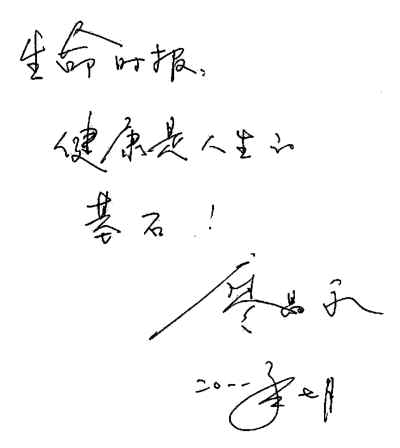 生命时报：
健康是人生的
基石！
廖昌永
二〇一一年七月